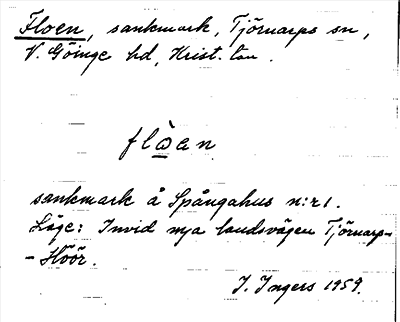 Floen, sankmark, Tjörnarps sn,
V. Göinge hd, Krist. län.
flὼan
sankmark å Spångahus n:r 1.
Läge: Invid nya landsvägen Tjörnarp-
- Höör.
I. Ingers 1959.